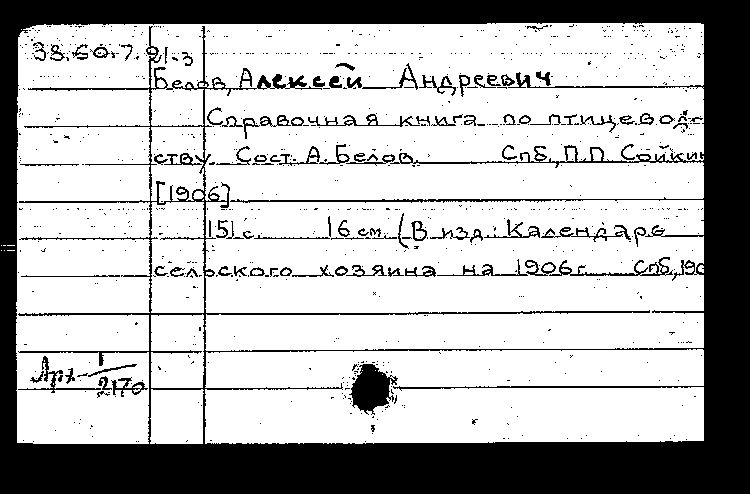 38.60.7.21.3
Белов, Алексей Андреевич
Справочная книга по птицевод-
ству. Сост. А. Белов. Спб., П.П. Сойкин
[1906].
151 с. 16 см. (В изд.: Календарь
сельского хозяина на 1906 г. Спб., 190
Арх 1/2170